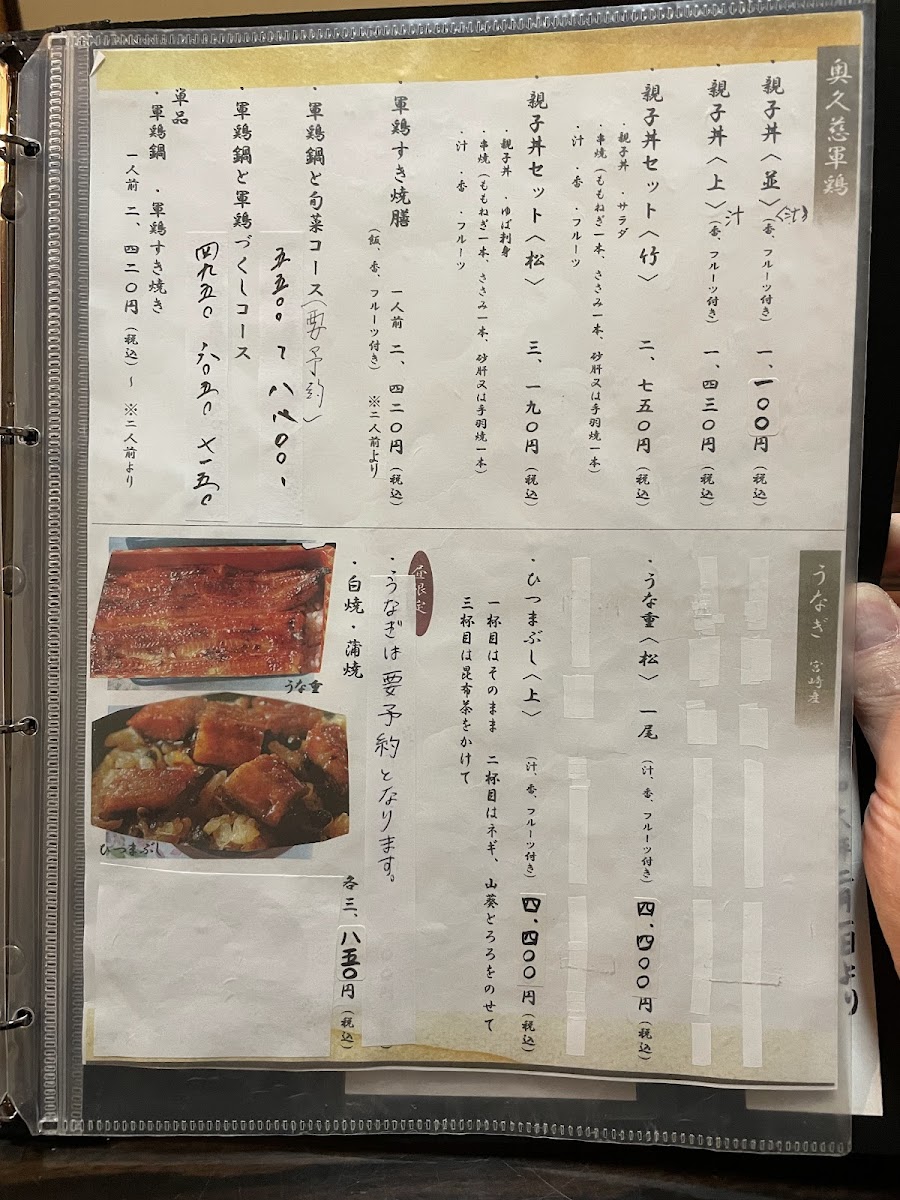 奥久慈軍鶏
・親子丼〈並〉(香、フルーツ付き) 一、一〇〇円(税込)
〈汁〉
・親子丼〈上〉(香、フルーツ付き) 一、四三〇円(税込)
汁
・親子丼セット〈竹〉 二、七五〇円(税込)
・親子丼 ・サラダ
・串焼(ももねぎ一本、ささみ一本、砂肝又は手羽焼一本)
・汁 ・香 ・フルーツ
・親子丼セット〈松〉 三、一九〇円(税込)
・親子丼 ・ゆば刺身
・串焼(ももねぎ一本、ささみ一本、砂肝又は手羽焼一本)
・汁 ・香 ・フルーツ
・軍鶏すき焼膳 一人前 二、四二〇円(税込)
(飯、香、フルーツ付き) ※二人前より
・軍鶏鍋と旬菜コース(要予約)
五五〇〇 て 八八〇〇、
・軍鶏鍋と軍鶏づくしコース
四九五〇 六〇五〇 七一五〇
単品
・軍鶏鍋 ・軍鶏すき焼き
一人前 二、四二〇円(税込)〜 ※二人前より
うなぎ 宮崎産
・うな重〈松〉 一尾 (汁、香、フルーツ付き) 四、四〇〇円(税込)
・ひつまぶし〈上〉 (汁、香、フルーツ付き) 四、四〇〇円(税込)
一杯目はそのまま 二杯目はネギ、山葵とろろをのせて
三杯目は昆布茶をかけて
昼限定
・うなぎは要予約となります。
・白焼・蒲焼 各三、八五〇円(税込)
うな重
ひつまぶし